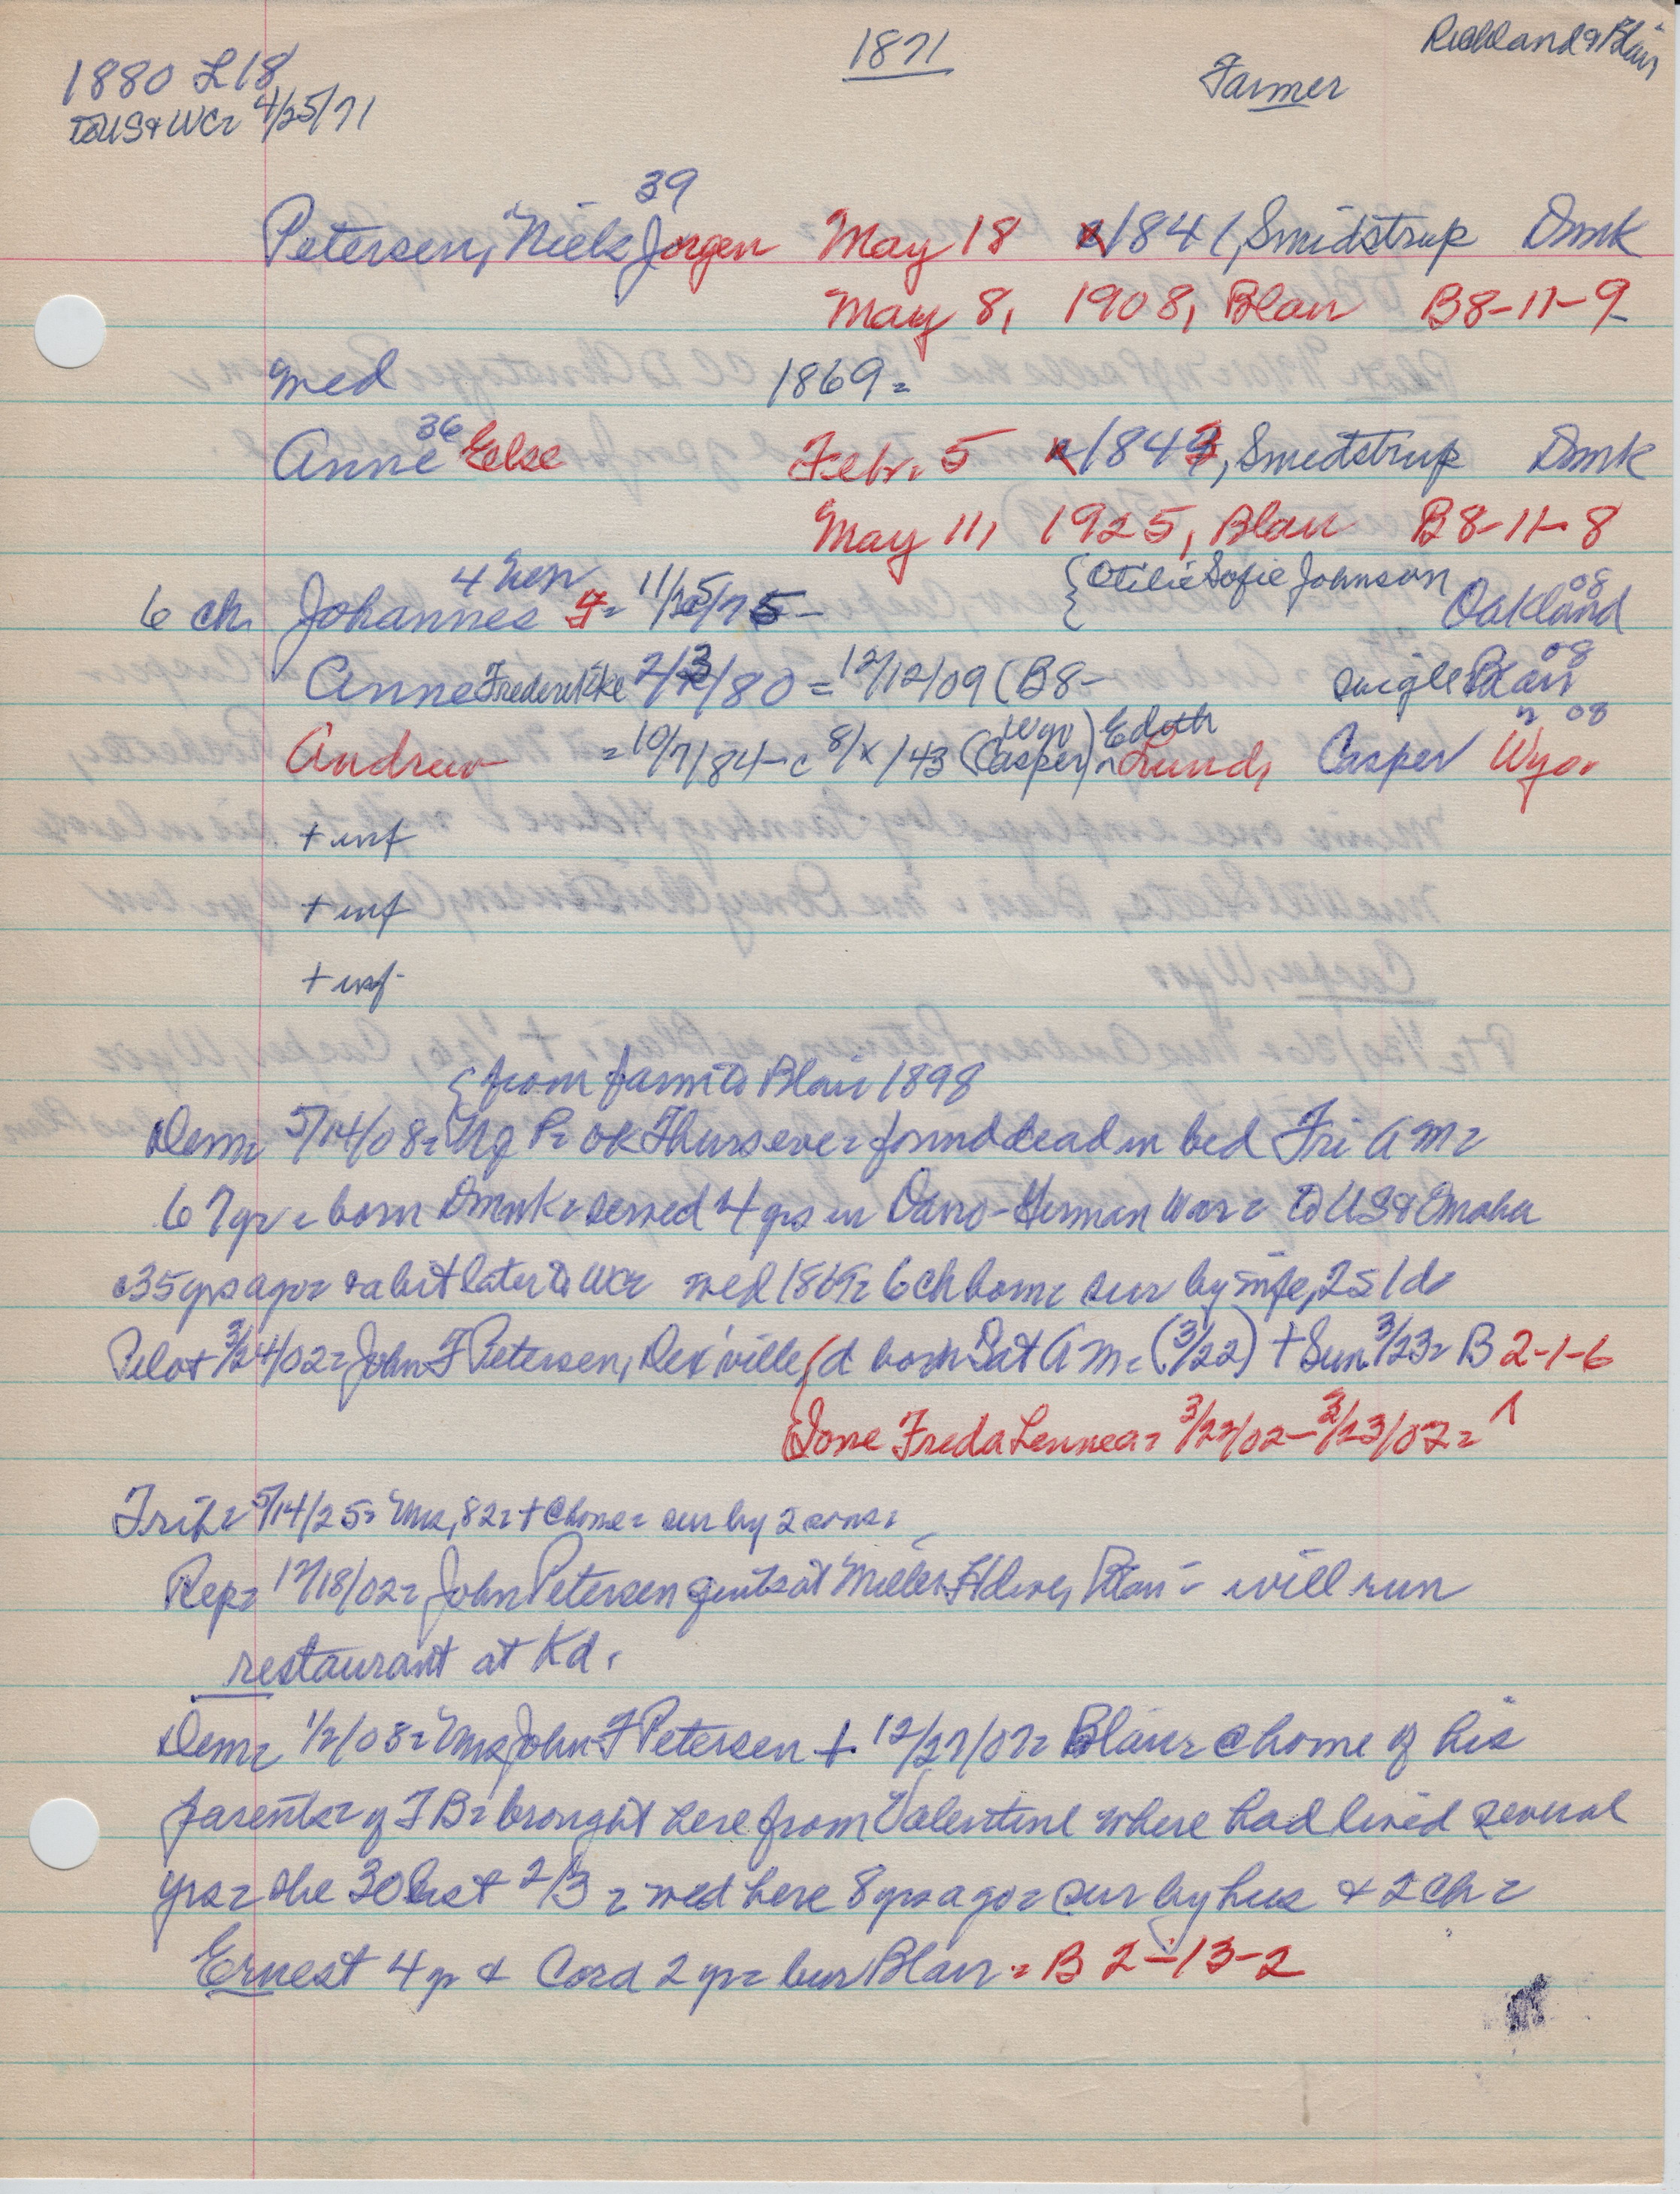 1871
Richland & Blair
1880 L18
Farmer
to US & WC = 4/25/71
39
Petersen, Niels Jorgen May 18 1841, Smidstrup Dmk
May 8, 1908, Blair B8-11-9
med 1869 =
36
Anne Else Febr. 5 1843, Smedstrup Dmk
May 11, 1925, Blair B8-11-8
4 Nen { Otilie Sofie Johnson 08
6 ch. Johannes F = 11/25/75 - Oakland
08
Anne Frederikke 2/3/80 = 12/12/09 (B8- single Blair
Wyo Edith n 08
Andrew = 10/7/84 - c 8/x/43 (Casper) n Lund, Casper Wyo.
+ inf
+ inf
+ inf
{ from farm to Blair 1898
Dem = 5/14/08 = N J P = OK Thurs eve = found dead in bed Fri A M =
67 yr = born Dmk = served 4 yrs in Dano-German War = to US & Omaha
c35 yrs ago = & a bit later to WC = med 1869 = 6 ch born = sur by wife, 2 s 1 d =
Pilot 3/24/02 = John F Petersen, Dex'ville, (d born Sat A M = (3/22) + Sun 3/23 = B 2-1-6
Done Freda Lennea = 3/22/02 - 3/23/02 = 1
Trib = 5/14/25 = Mrs, 82 = + @ home = sur by 2 sons =
Rep = 12/18/02 = John Petersen quits at Hdwe, Blair = will run
restaurant at Kd.
Dem = 1/2/08 = Mrs John F Petersen + 12/27/07 = Blair = @ home of his
parents = of T B = brought here from Valentine where had lived several
yrs = she 30 last 2/3 = med here 8 yrs ago = sur by hus & 2 ch =
Ernest 4 yr & Cora 2 yr = bur Blair = B 2-13-2